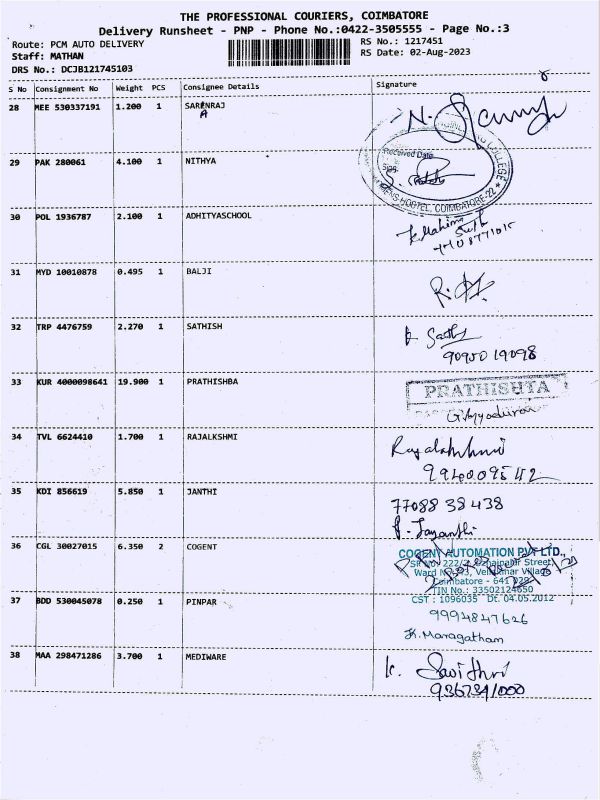 THE PROFESSIONAL COURIERS, COIMBATORE
Delivery Runsheet - PNP - Phone No.:0422-3505555 - Page No.:3
Route: PCM AUTO DELIVERY
RS No.: 1217451
Staff: MATHAN
RS Date: 02-Aug-2023
DRS No.: DCJB121745103
S No Consignment No Weight PCS Consignee Details Signature
28 MEE 530337191 1.200 1 SARENRAJ
A
N.
COLLEGE
Received Date
Sign
HOSTEL, COIMBATORE-22
29 PAK 280061 4.100 1 NITHYA
30 POL 1936787 2.100 1 ADHITYASCHOOL
K. Mahima
31 MYD 10010878 0.495 1 BALJI
32 TRP 4476759 2.270 1 SATHISH
90950 19098
33 KUR 4000098641 19.900 1 PRATHISHBA
PRATHISHTA
34 TVL 6624410 1.700 1 RAJALKSHMI
Rajalakshmi
35 KDI 856619 5.850 1 JANTHI
77088 38438
P. Jayanthi
36 CGL 30027015 6.350 2 COGENT
COGENT AUTOMATION PVT LTD.,
Street
Coimbatore - 641 029
TIN No.: 33502124650
CST : 1096035 Dt. 04.05.2012
37 BDD 530045078 0.250 1 PINPAR
9994847626
K. Maragatham
38 MAA 298471286 3.700 1 MEDIWARE
K. Savithri